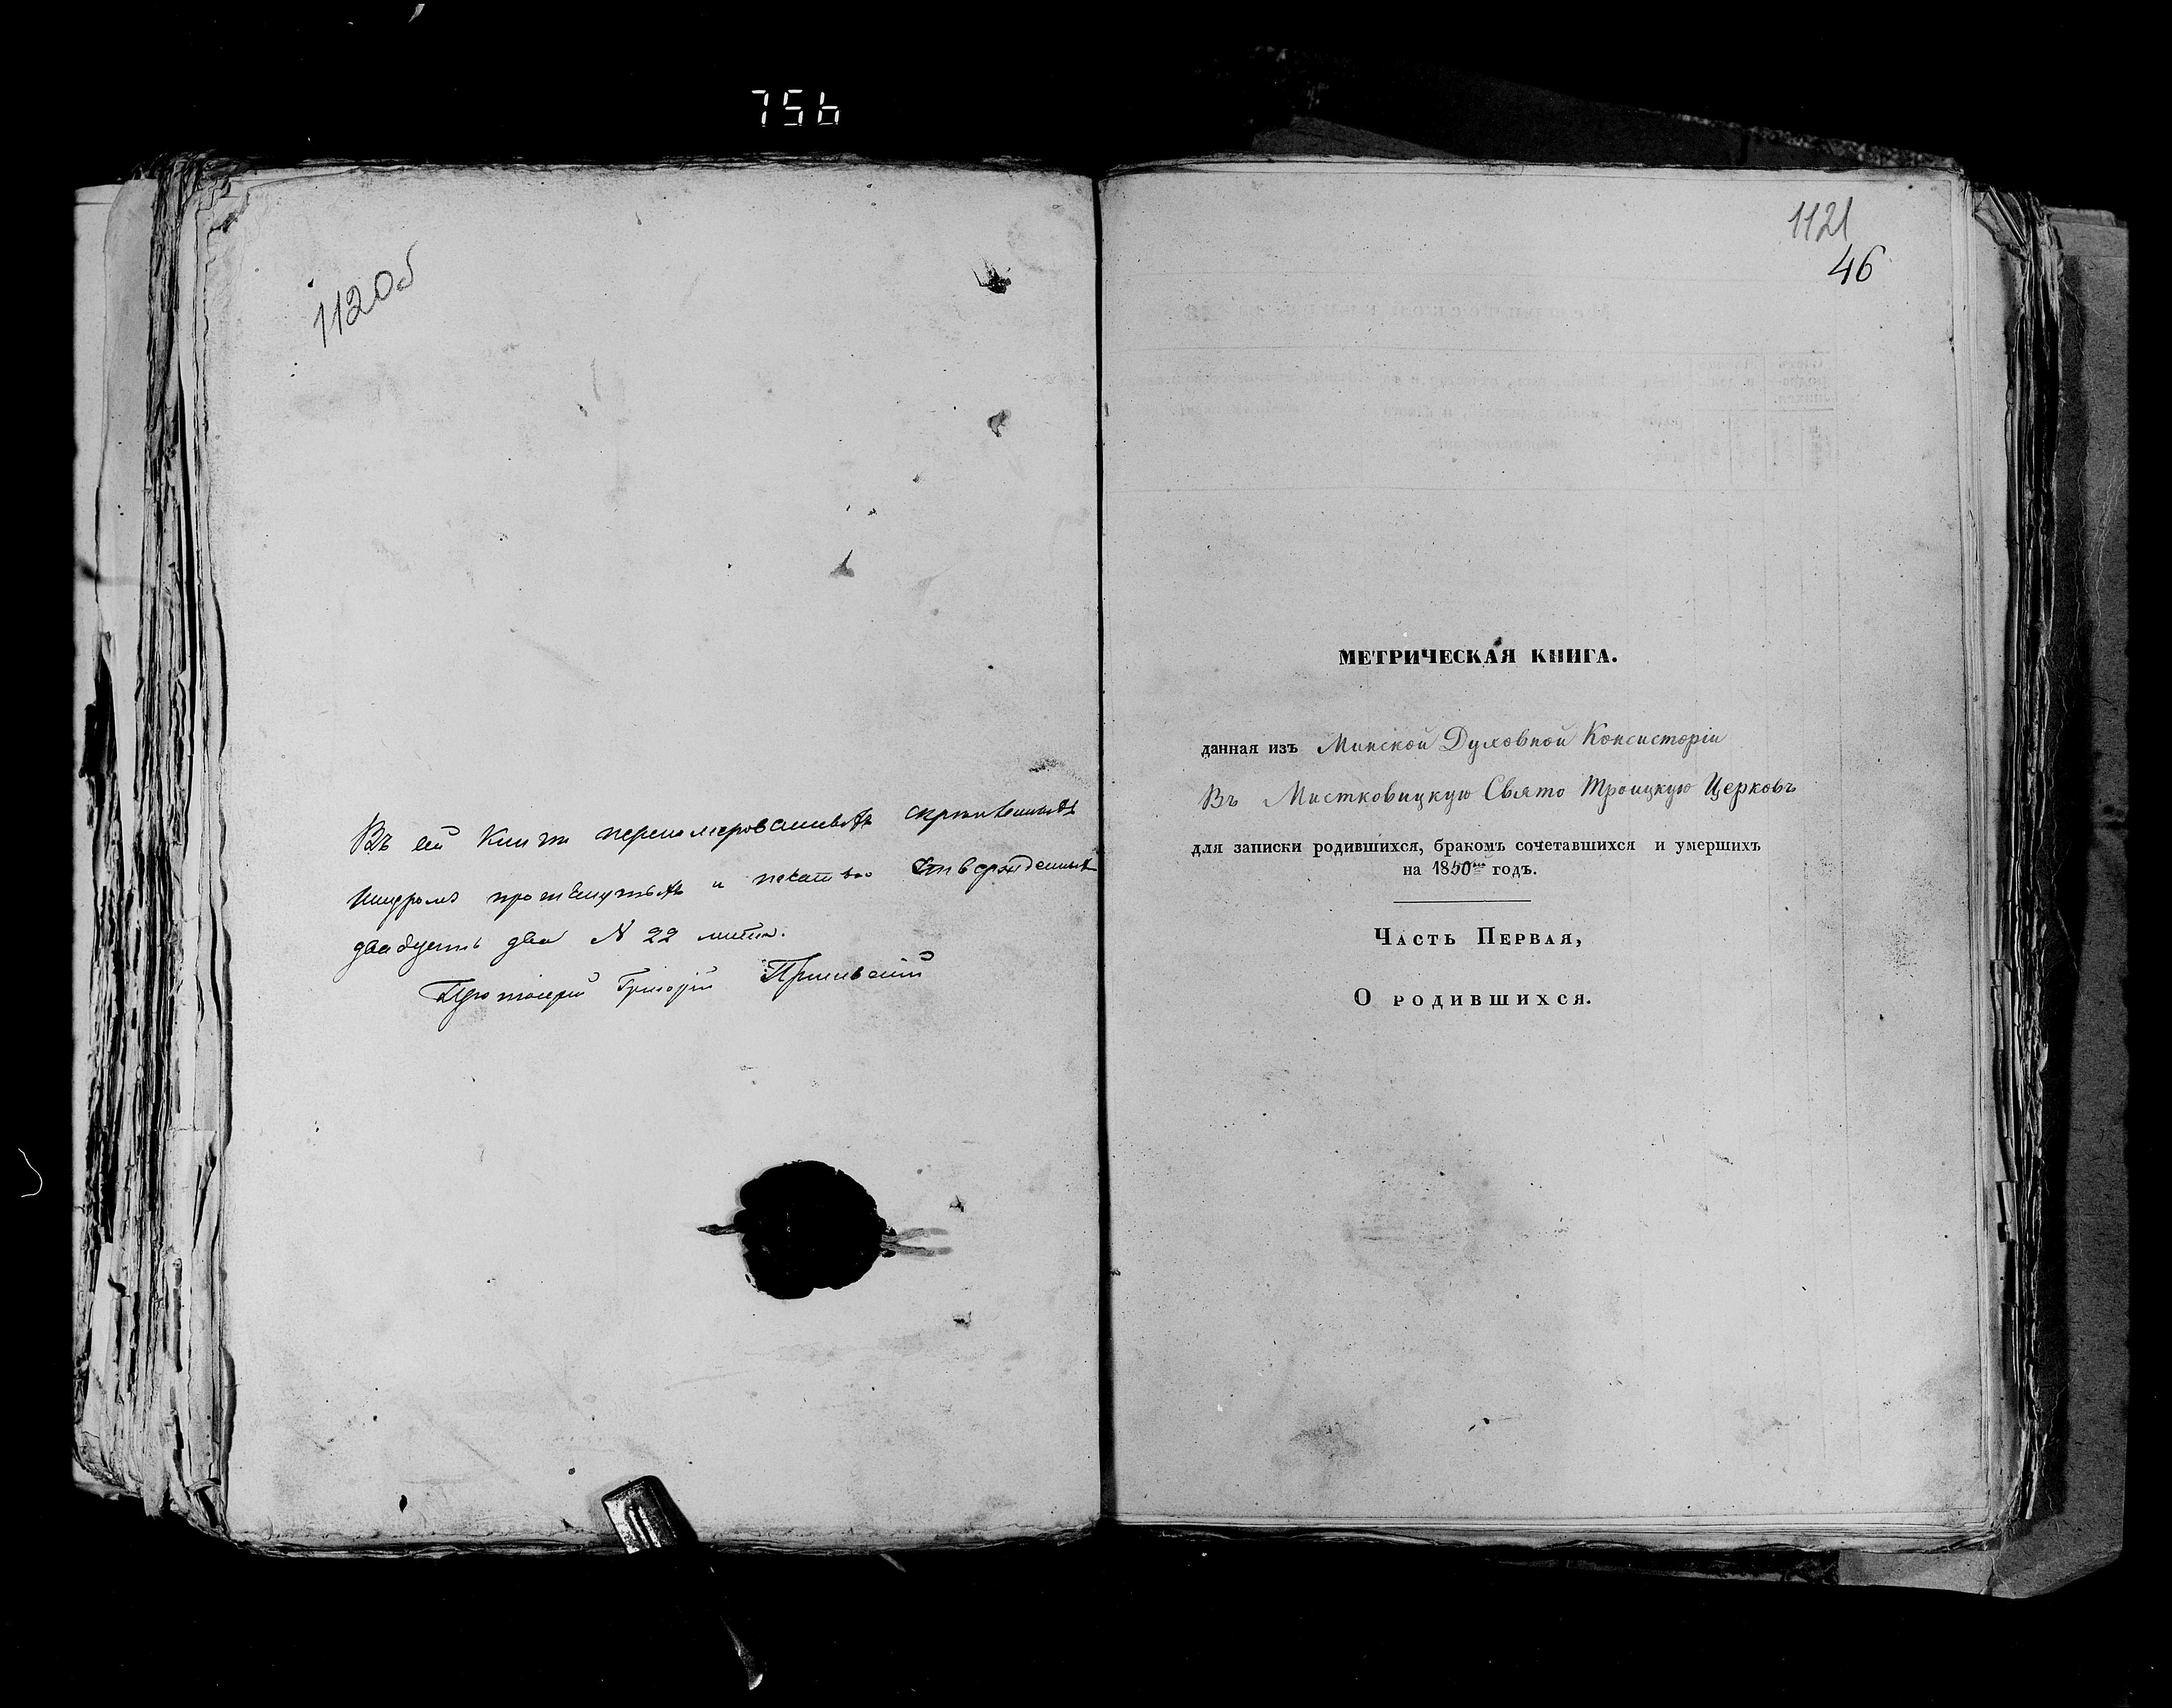 756
1120об
Въ сей Книги перенумерованныхъ скрепленныхъ
шнуромъ протянутыхъ и печатью утвержденныхъ
двадцать два N 22 листа.
Протоіерей Григорій
1121
46
МЕТРИЧЕСКАЯ КНИГА.
данная изъ Минской Духовной Консисторіи
Въ Мистковицкую Свято Троицкую Церковь
для записки родившихся, бракомъ сочетавшихся и умершихъ
на 1850ый годъ.
Часть Первая,
О РОДИВШИХСЯ.